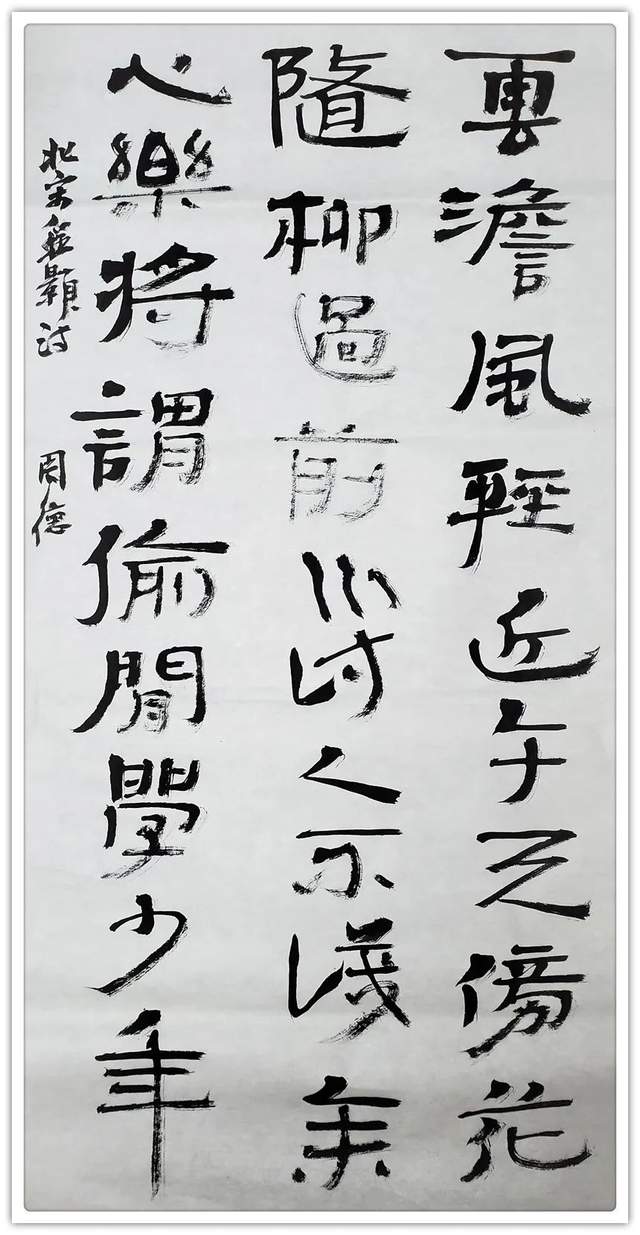 雲澹風輕近午天傍花
隨柳過前川时人不識余
心樂将謂偷閒學少年
北宋程顥诗 周德